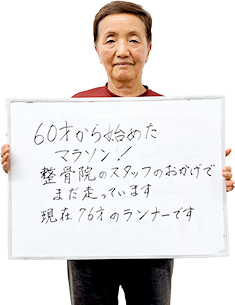 60才から始めた
マラソン！
整骨院のスタッフのおかげで
まだ走っています
現在76才のランナーです